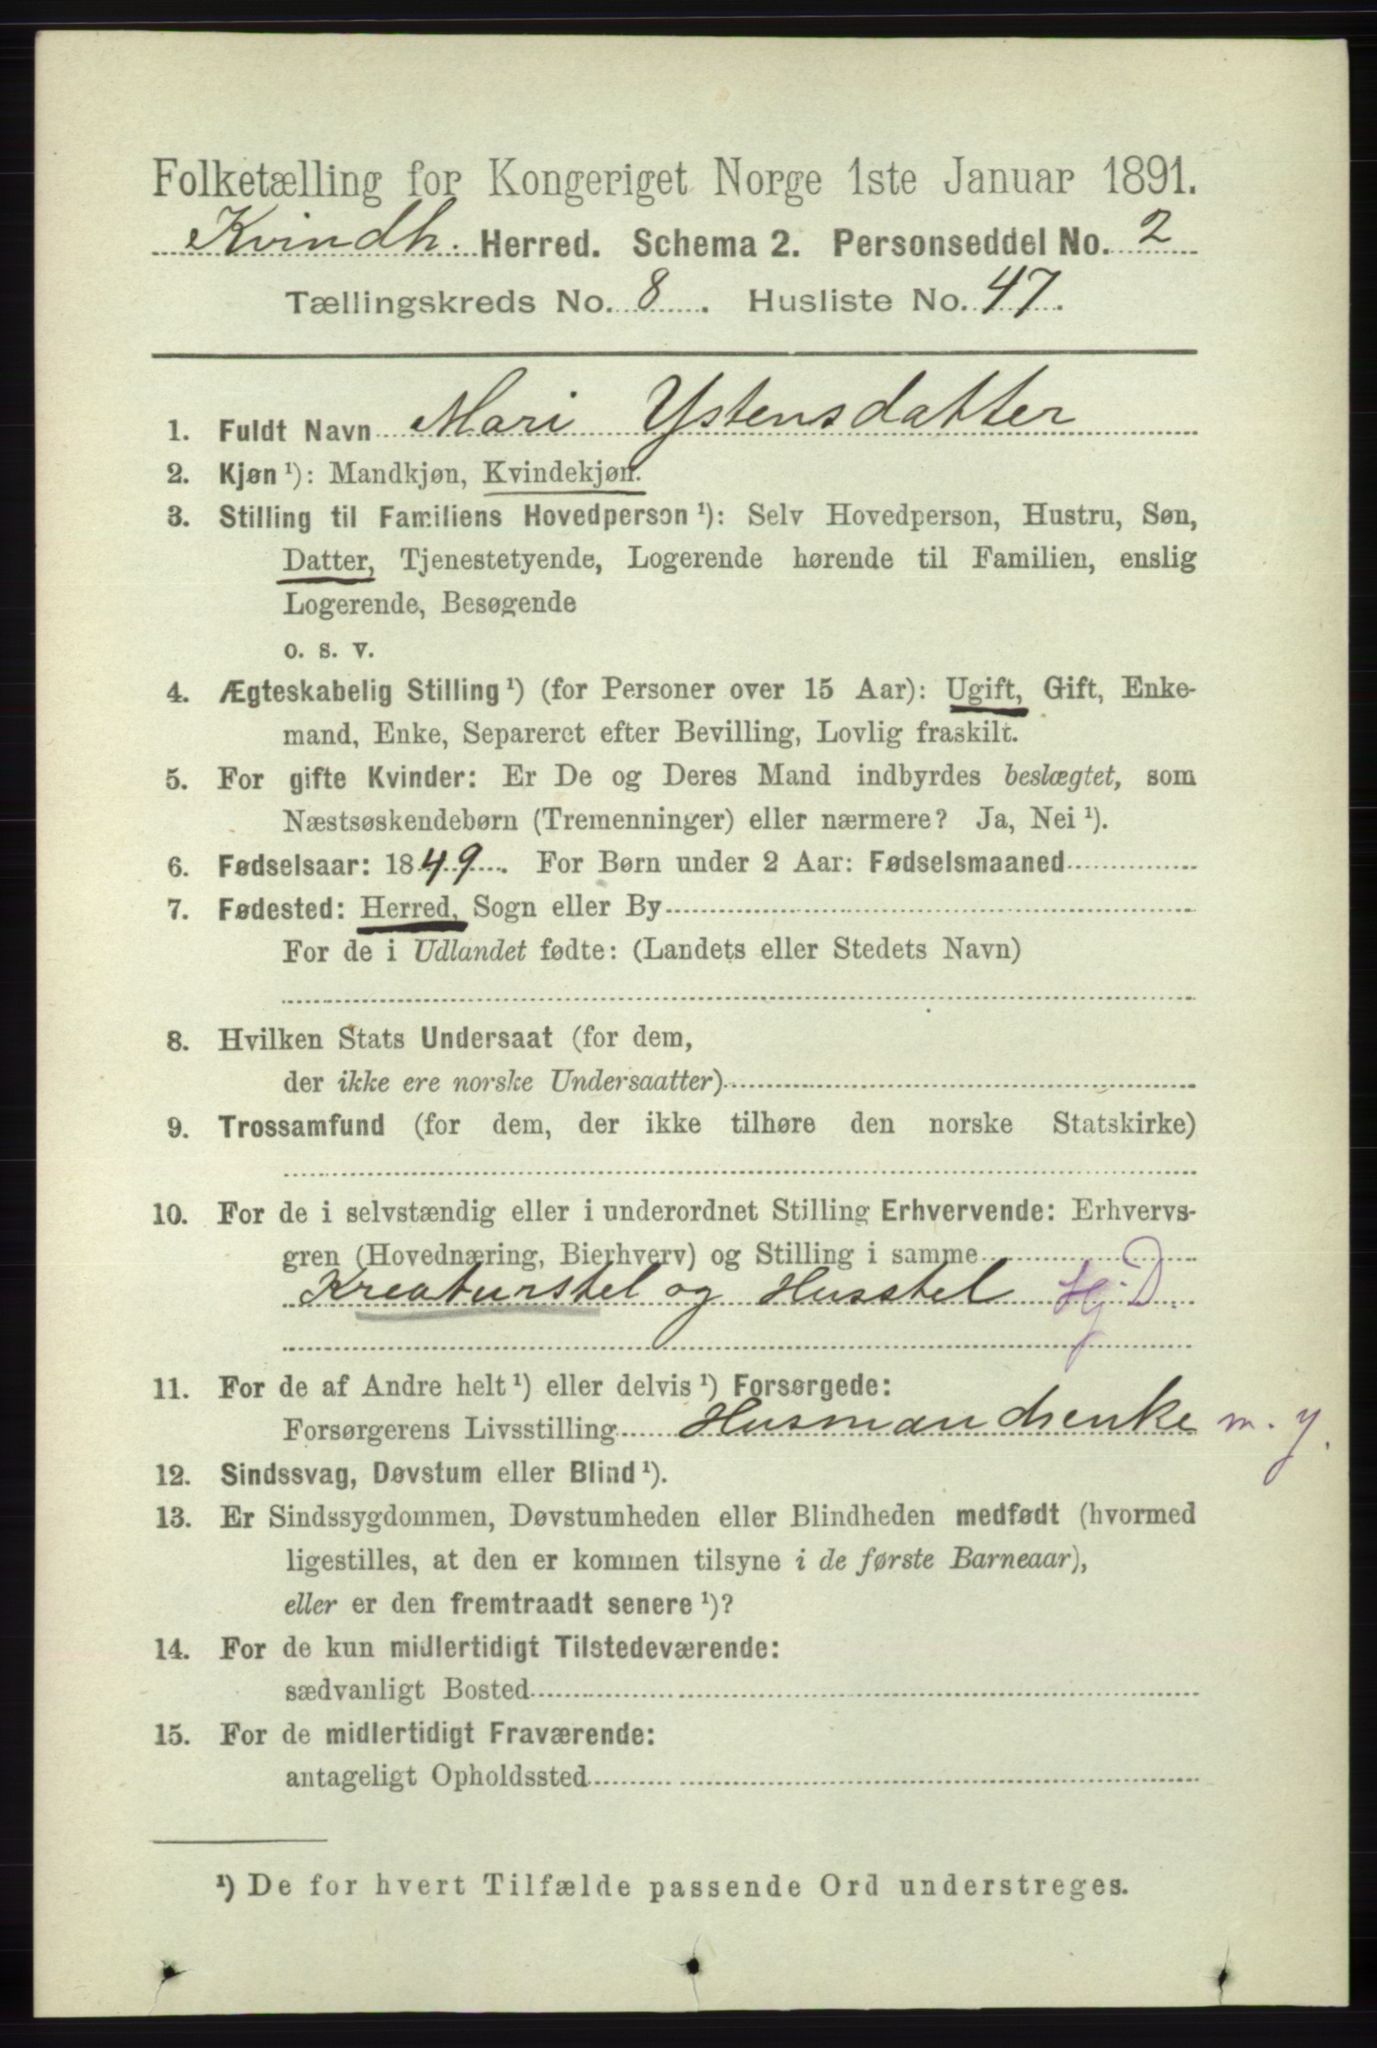 Folketælling for Kongeriget Norge 1ste Januar 1891.
Kvindh. Herred. Schema 2. Personseddel No. 2
Tællingskreds No. 8. Husliste No. 47.
1. Fuldt Navn Mari Ystensdatter
2. Kjøn ¹): Mandkjøn, Kvindekjøn.
3. Stilling til Familiens Hovedperson ¹): Selv Hovedperson, Hustru, Søn,
Datter, Tjenestetyende, Logerende hørende til Familien, enslig
Logerende, Besøgende
o. s. v.
4. Ægteskabelig Stilling ¹) (for Personer over 15 Aar): Ugift, Gift, Enke-
mand, Enke, Separeret efter Bevilling, Lovlig fraskilt.
5. For gifte Kvinder: Er De og Deres Mand indbyrdes beslægtet, som
Næstsøskendebørn (Tremenninger) eller nærmere? Ja, Nei ¹).
6. Fødselsaar: 1849. For Børn under 2 Aar: Fødselsmaaned
7. Fødested: Herred, Sogn eller By
For de i Udlandet fødte: (Landets eller Stedets Navn)
8. Hvilken Stats Undersaat (for dem,
der ikke ere norske Undersaatter)
9. Trossamfund (for dem, der ikke tilhøre den norske Statskirke)
10. For de i selvstændig eller i underordnet Stilling Erhvervende: Erhvervs-
gren (Hovednæring, Bierhverv) og Stilling i samme
Kreaturstel og Husstel Hj. D.
11. For de af Andre helt ¹) eller delvis ¹) Forsørgede:
Forsørgerens Livsstilling Husmandsenke m. y.
12. Sindssvag, Døvstum eller Blind ¹).
13. Er Sindssygdommen, Døvstumheden eller Blindheden medfødt (hvormed
ligestilles, at den er kommen tilsyne i de første Barneaar),
eller er den fremtraadt senere ¹)?
14. For de kun midlertidigt Tilstedeværende:
sædvanligt Bosted
15. For de midlertidigt Fraværende:
antageligt Opholdssted
¹) De for hvert Tilfælde passende Ord understreges.